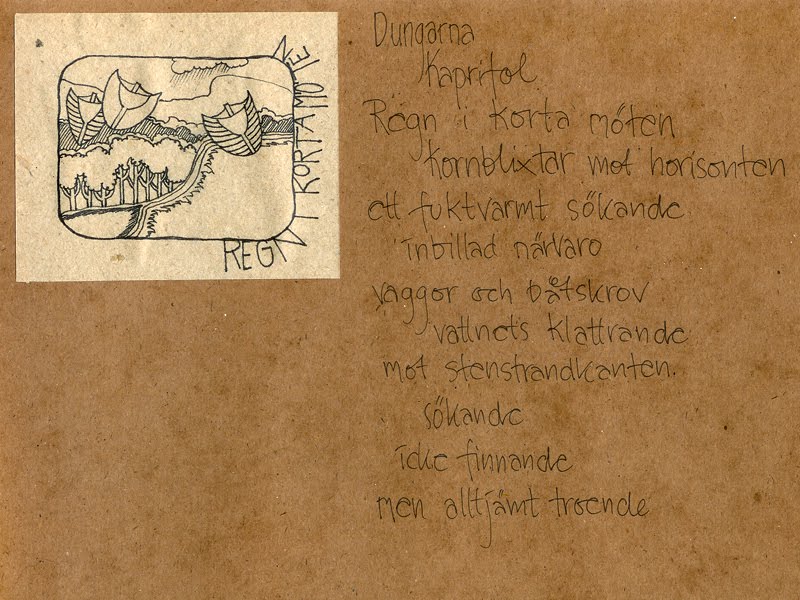 REGN I KORTA MÖTEN
Dungarna
Kaprifol
Regn i korta möten
Kornblixtar mot horisonten
ett fuktvarmt sökande
inbillad närvaro
vaggor och båtskrov
vattnets klattrande
mot stenstrandkanten.
sökande
icke finnande
men alltjämt troende